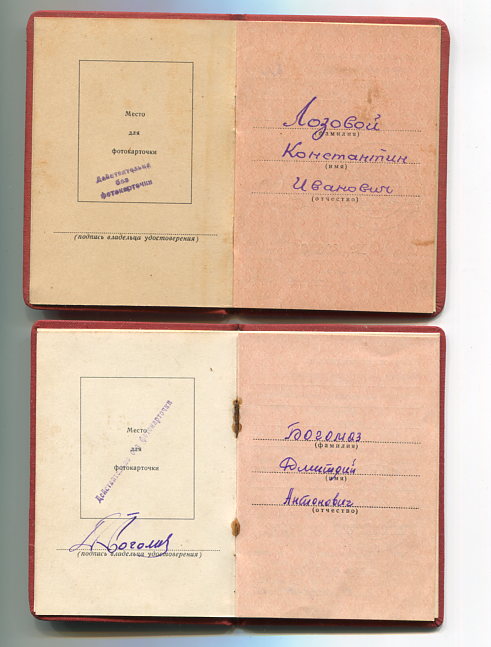 Место
для
фотокарточки
Действительно
без
фотокарточки
(подпись владельца удостоверения)
Лозовой
(фамилия)
Константин
(имя)
Иванович
(отчество)
Место
для
фотокарточки
Действительно без фотокарточки
Богомаз
(подпись владельца удостоверения)
Богомаз
(фамилия)
Дмитрий
(имя)
Антонович
(отчество)